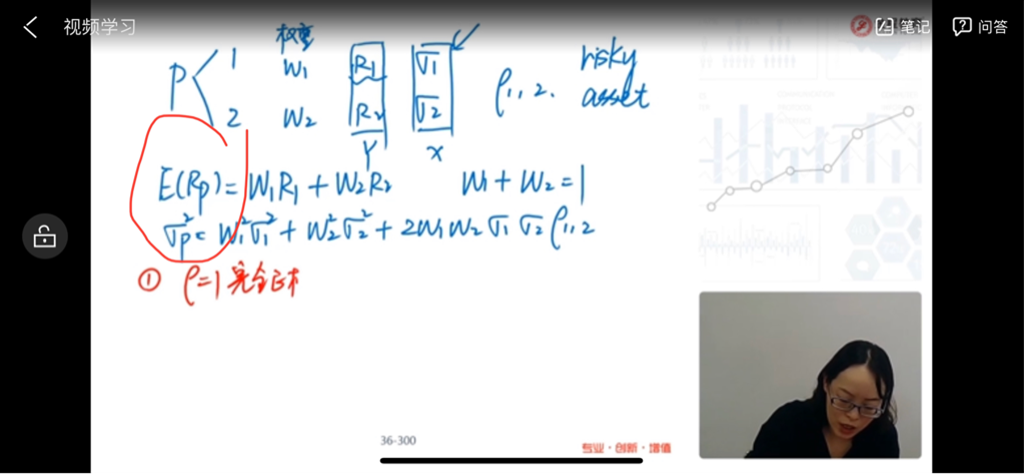 视频学习
笔记
问答
权重
P 1 W1 R1 σ1 ρ1,2. risky
2 W2 R2 σ2 asset
Y X
E(Rp)=W1R1+W2R2 W1+W2=1
σp²= W1²σ1²+W2²σ2²+2W1W2σ1σ2ρ1,2
① ρ=1 完全正相
36-300
专业·创新·增值